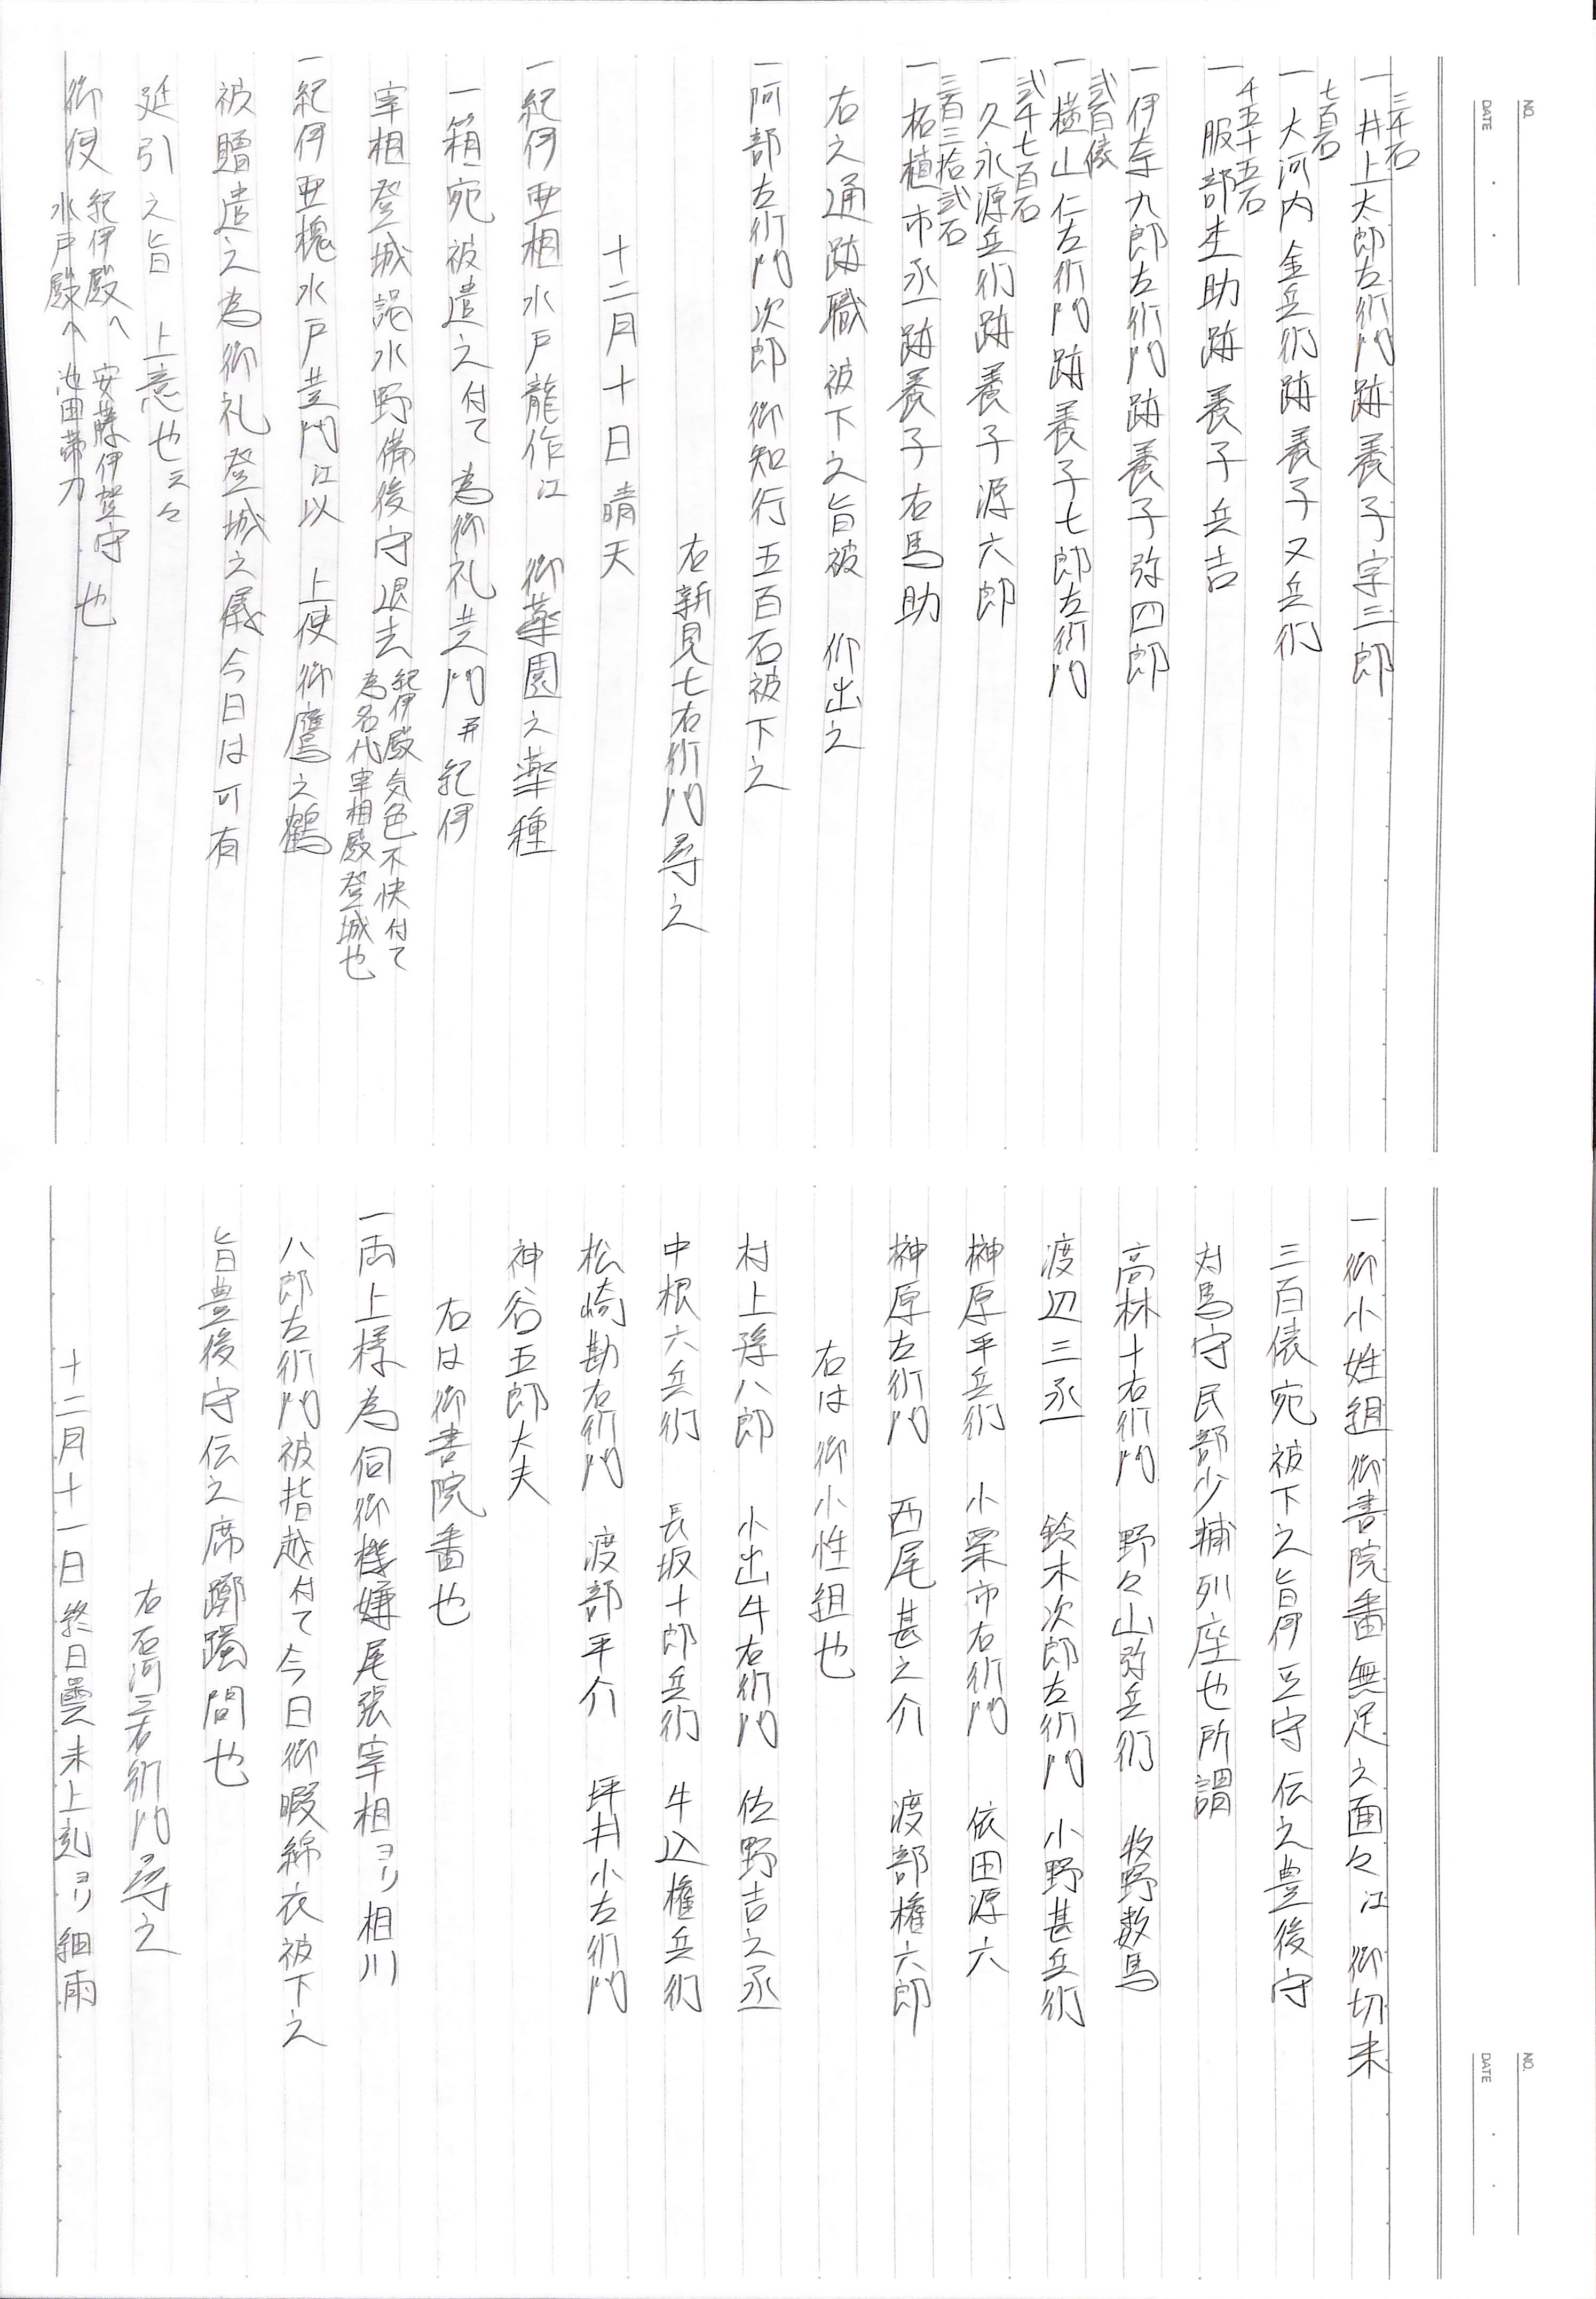 NO.
DATE
三千石
一井上太郎左衛門跡養子宇三郎
七百石
一大河内金兵衛跡養子又兵衛
千五十五石
一服部杢助跡養子兵吉
一伊奈九郎左衛門跡養子弥四郎
弐百俵
一横山仁左衛門跡養子七郎左衛門
弐千七百石
一久永源兵衛跡養子源六郎
三百三拾弐石
一柘植市丞跡養子右馬助
右之通跡職被下之旨被 仰出之
一阿部左衛門次郎御知行五百石被下之
右新見七右衛門尋之
十二月十日晴天
一紀伊亜相水戸龍作江 御薬園之薬種
一箱宛被遣之付て為御礼黄門并紀伊
宰相登城謁水野備後守退去紀伊殿気色不快付て
為名代宰相殿登城也
一紀伊亜槐水戸黄門江以 上使御鷹之鶴
被贈遣之為御礼登城之儀今日は可有
延引之旨 上意也云々
御使 紀伊殿へ 安藤伊賀守
水戸殿へ 池田帯刀 也
NO.
DATE
一御小姓組御書院番無足之面々江 御切米
三百俵宛被下之旨伊豆守伝之豊後守
対馬守民部少輔列座也所謂
高林十右衛門 野々山弥兵衛 牧野数馬
渡辺三丞 鈴木次郎左衛門 小野甚兵衛
榊原平兵衛 小栗市右衛門 依田源六
榊原左衛門 西尾甚之介 渡部権六郎
右は御小性組也
村上孫八郎 小出牛右衛門 佐野吉之丞
中根六兵衛 長坂十郎兵衛 牛込権兵衛
松崎勘右衛門 渡部平介 坪井小左衛門
神谷五郎大夫
右は御書院番也
一両上様為伺御機嫌尾張宰相ヨリ相川
八郎左衛門被指越付て今日御暇綿衣被下之
旨豊後守伝之席躑躅間也
右石河三右衛門尋之
十二月十一日終日曇未上刻ヨリ細雨